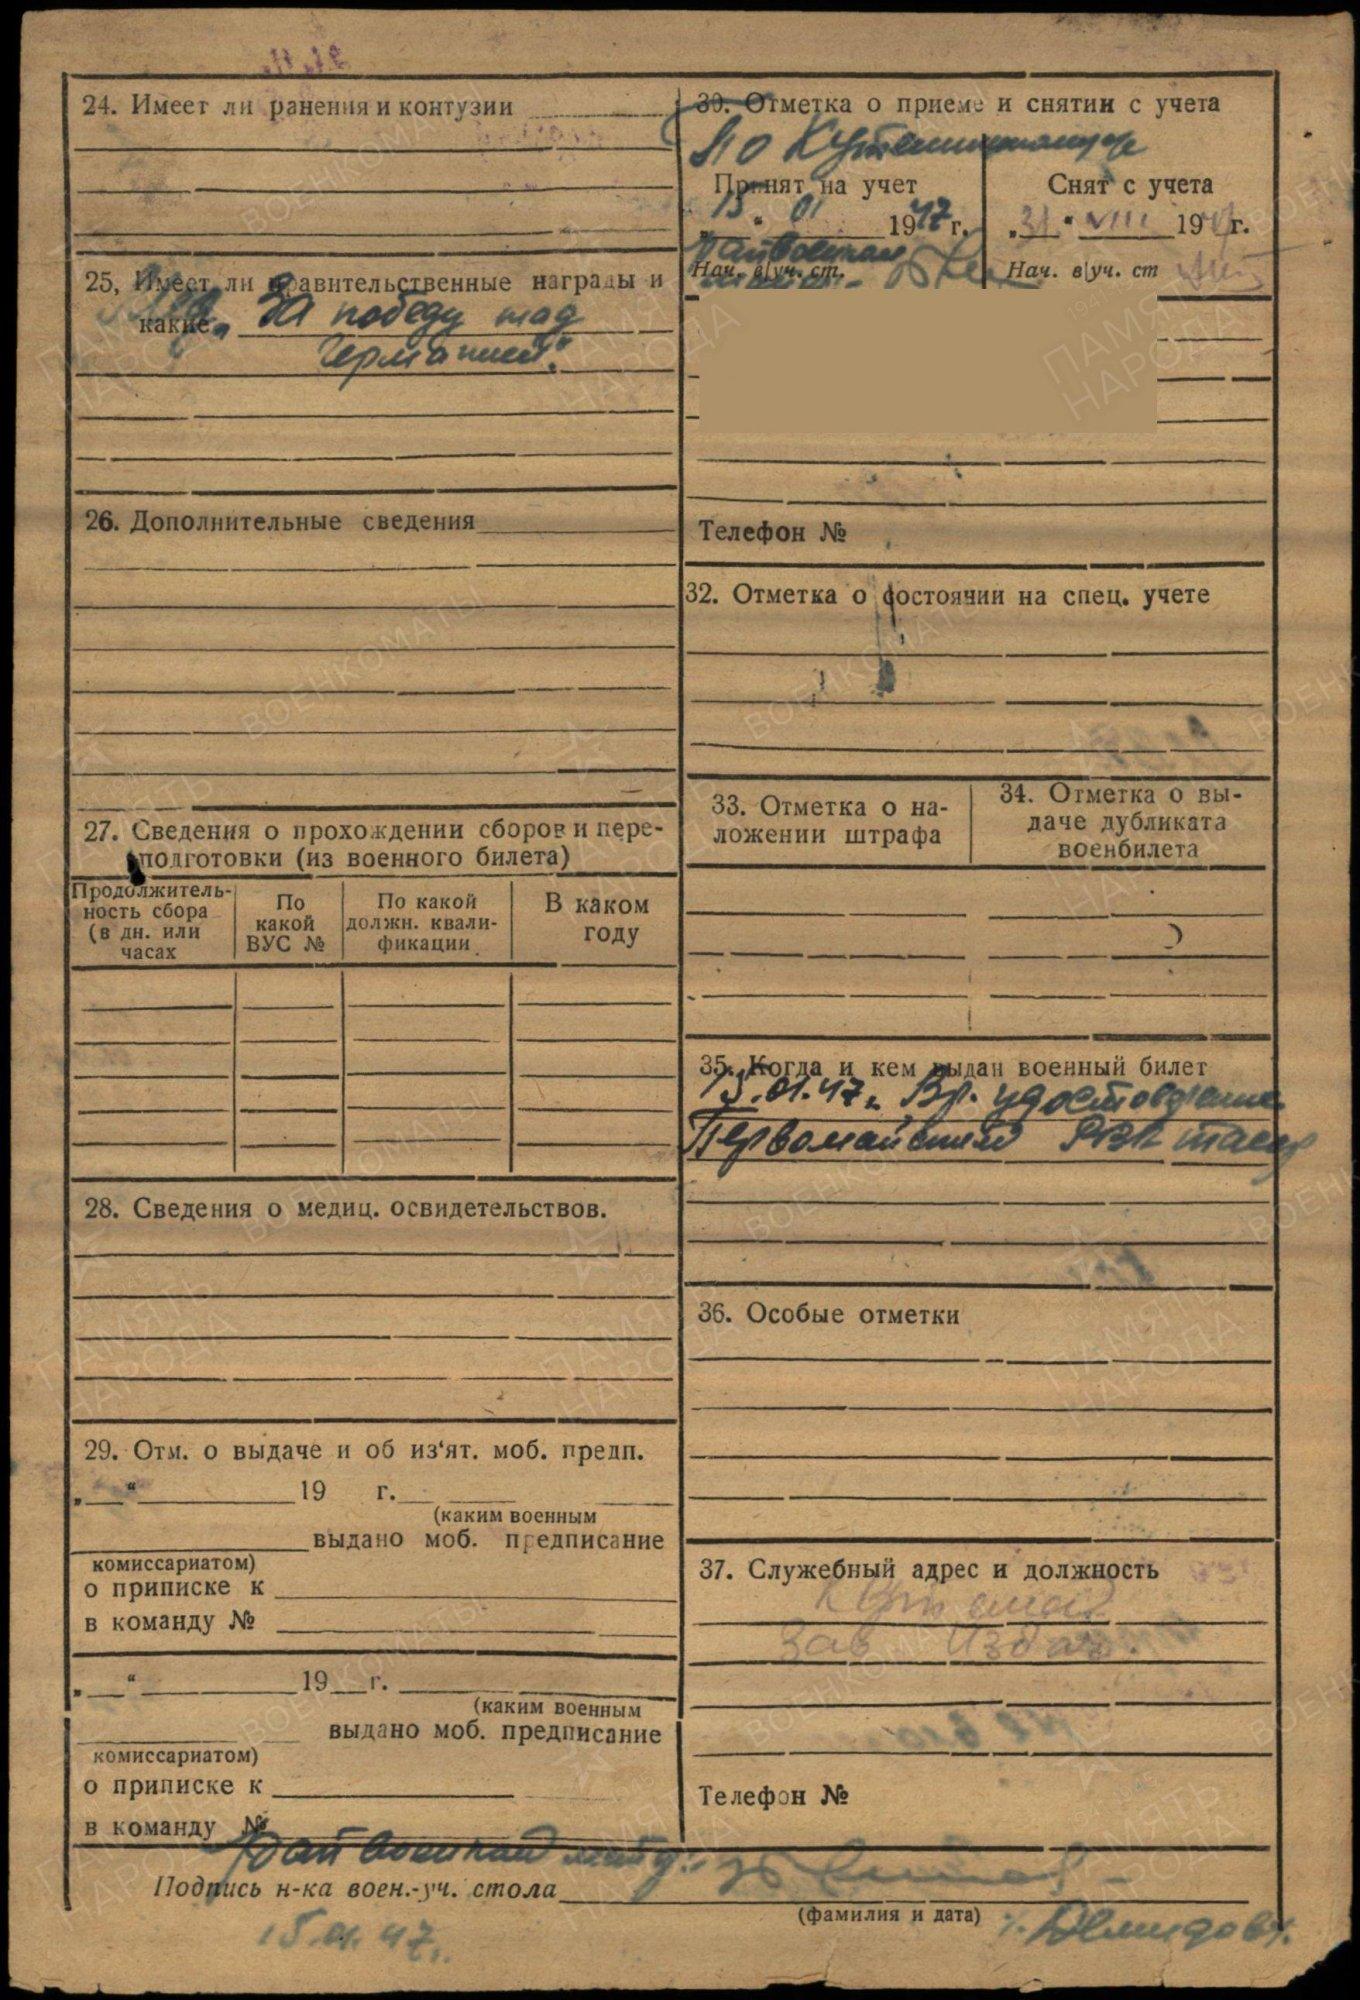 24. Имеет ли ранения и контузии
25, Имеет ли правительственные награды и
какие За победу над
Германией."
26. Дополнительные сведения
27. Сведения о прохождении сборов и пере-
подготовки (из военного билета)
Продолжитель-
ность сбора
(в дн. или
часах
По
какой
ВУС №
По какой
должн. квали-
фикации
В каком
году
28. Сведения о медиц. освидетельствов.
29. Отм. о выдаче и об из‘ят. моб. предп.
„ “ 19 г.
(каким военным
выдано моб. предписание
комиссариатом)
о приписке к
в команду №
„ “ 19 г.
(каким военным
выдано моб. предписание
комиссариатом)
о приписке к
в команду №
30. Отметка о приеме и снятии с учета
Принят на учет
15 “ 01 1947 г.
Нач. в|уч. ст.
Снят с учета
„31“ VIII 194 г.
Нач. в|уч. ст
Телефон №
32. Отметка о состоянии на спец. учете
33. Отметка о на-
ложении штрафа
34. Отметка о вы-
даче дубликата
военбилета
35. Когда и кем выдан военный билет
15.01.47. Вр. удостоверение
Первомайский РВК
36. Особые отметки
37. Служебный адрес и должность
Зав.
Телефон №
Райвоенком
Подпись н-ка воен.-уч. стола
(фамилия и дата)
15.01.47. Демидов
ПАМЯТЬ НАРОДА
ВОЕНКОМАТЫ